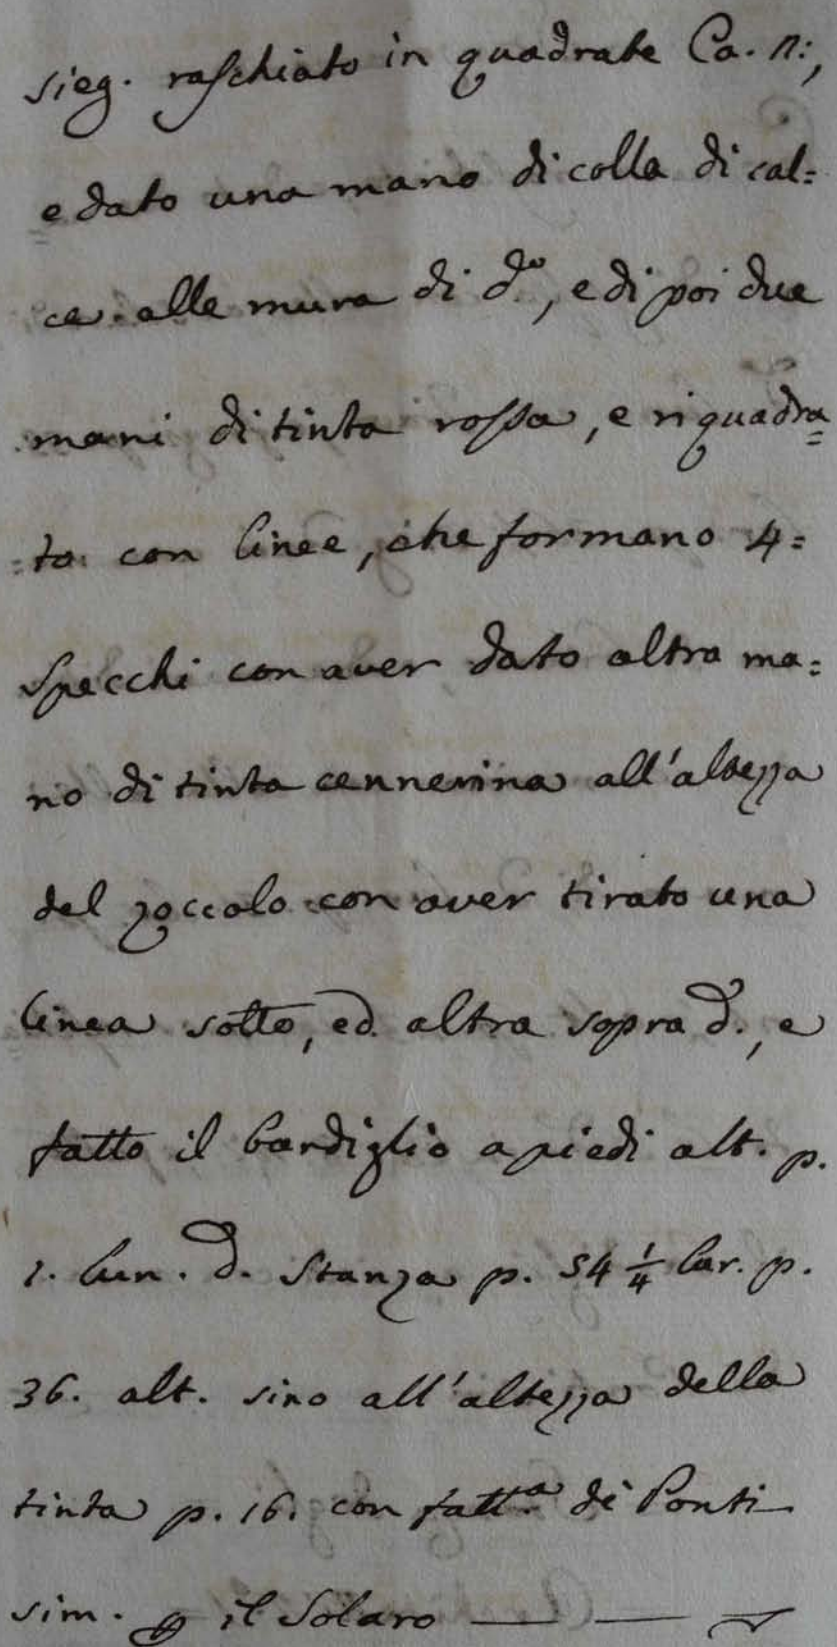 sieg. raschiato in quadrate Ca. n:,
e dato una mano di colla di cal=
ce alle mura di d.º, e di poi due
mani di tinta rossa, e riquadra=
=to con linee, che formano 4=
Specchi con aver dato altra ma=
no di tinta cennerina all'altezza
del zoccolo con aver tirato una
linea sotto, ed altra sopra d., e
fatto il bardiglio a piedi alt. p.
1. lun. d. Stanza p. 54 1/4 lar. p.
36. alt. sino all'altezza della
tinta p. 16. con fatt.ª de Ponti
sim. il Solaro — —